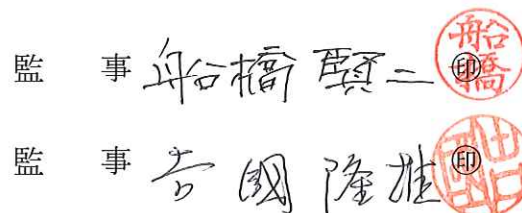 監 事 船橋 賢二 ㊞ 船橋
監 事 吉國 隆雄 ㊞